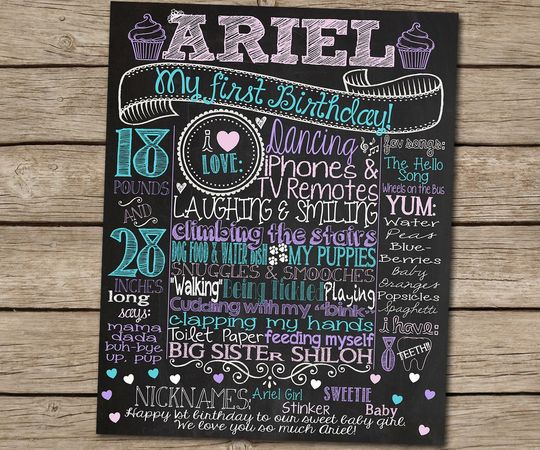 ARIEL
My first Birthday!
18
POUNDS
AND
28
INCHES
long
says:
mama
dada
buh-bye
up, pup
i ♥
LOVE:
Dancing
iPHONES &
TV REMOTES
LAUGHING & SMILING
climbing the stairs
DOG FOOD & WATER DISH MY PUPPIES
SNUGGLES & SMOOCHES
"Walking" Being Tickled Playing
Cuddling with my "bink"
clapping my hands
Toilet Paper feeding myself
BIG SISTER SHILOH
fav songs:
The Hello
Song
Wheels on the Bus
YUM:
Water
Peas
Blue-
Berries
Baby
Oranges
Popsicles
Spaghetti
i have:
TEETH!!
NICKNAMES: Ariel Girl SWEETIE
Stinker Baby
Happy 1st birthday to our sweet baby girl.
We love you so much Ariel!